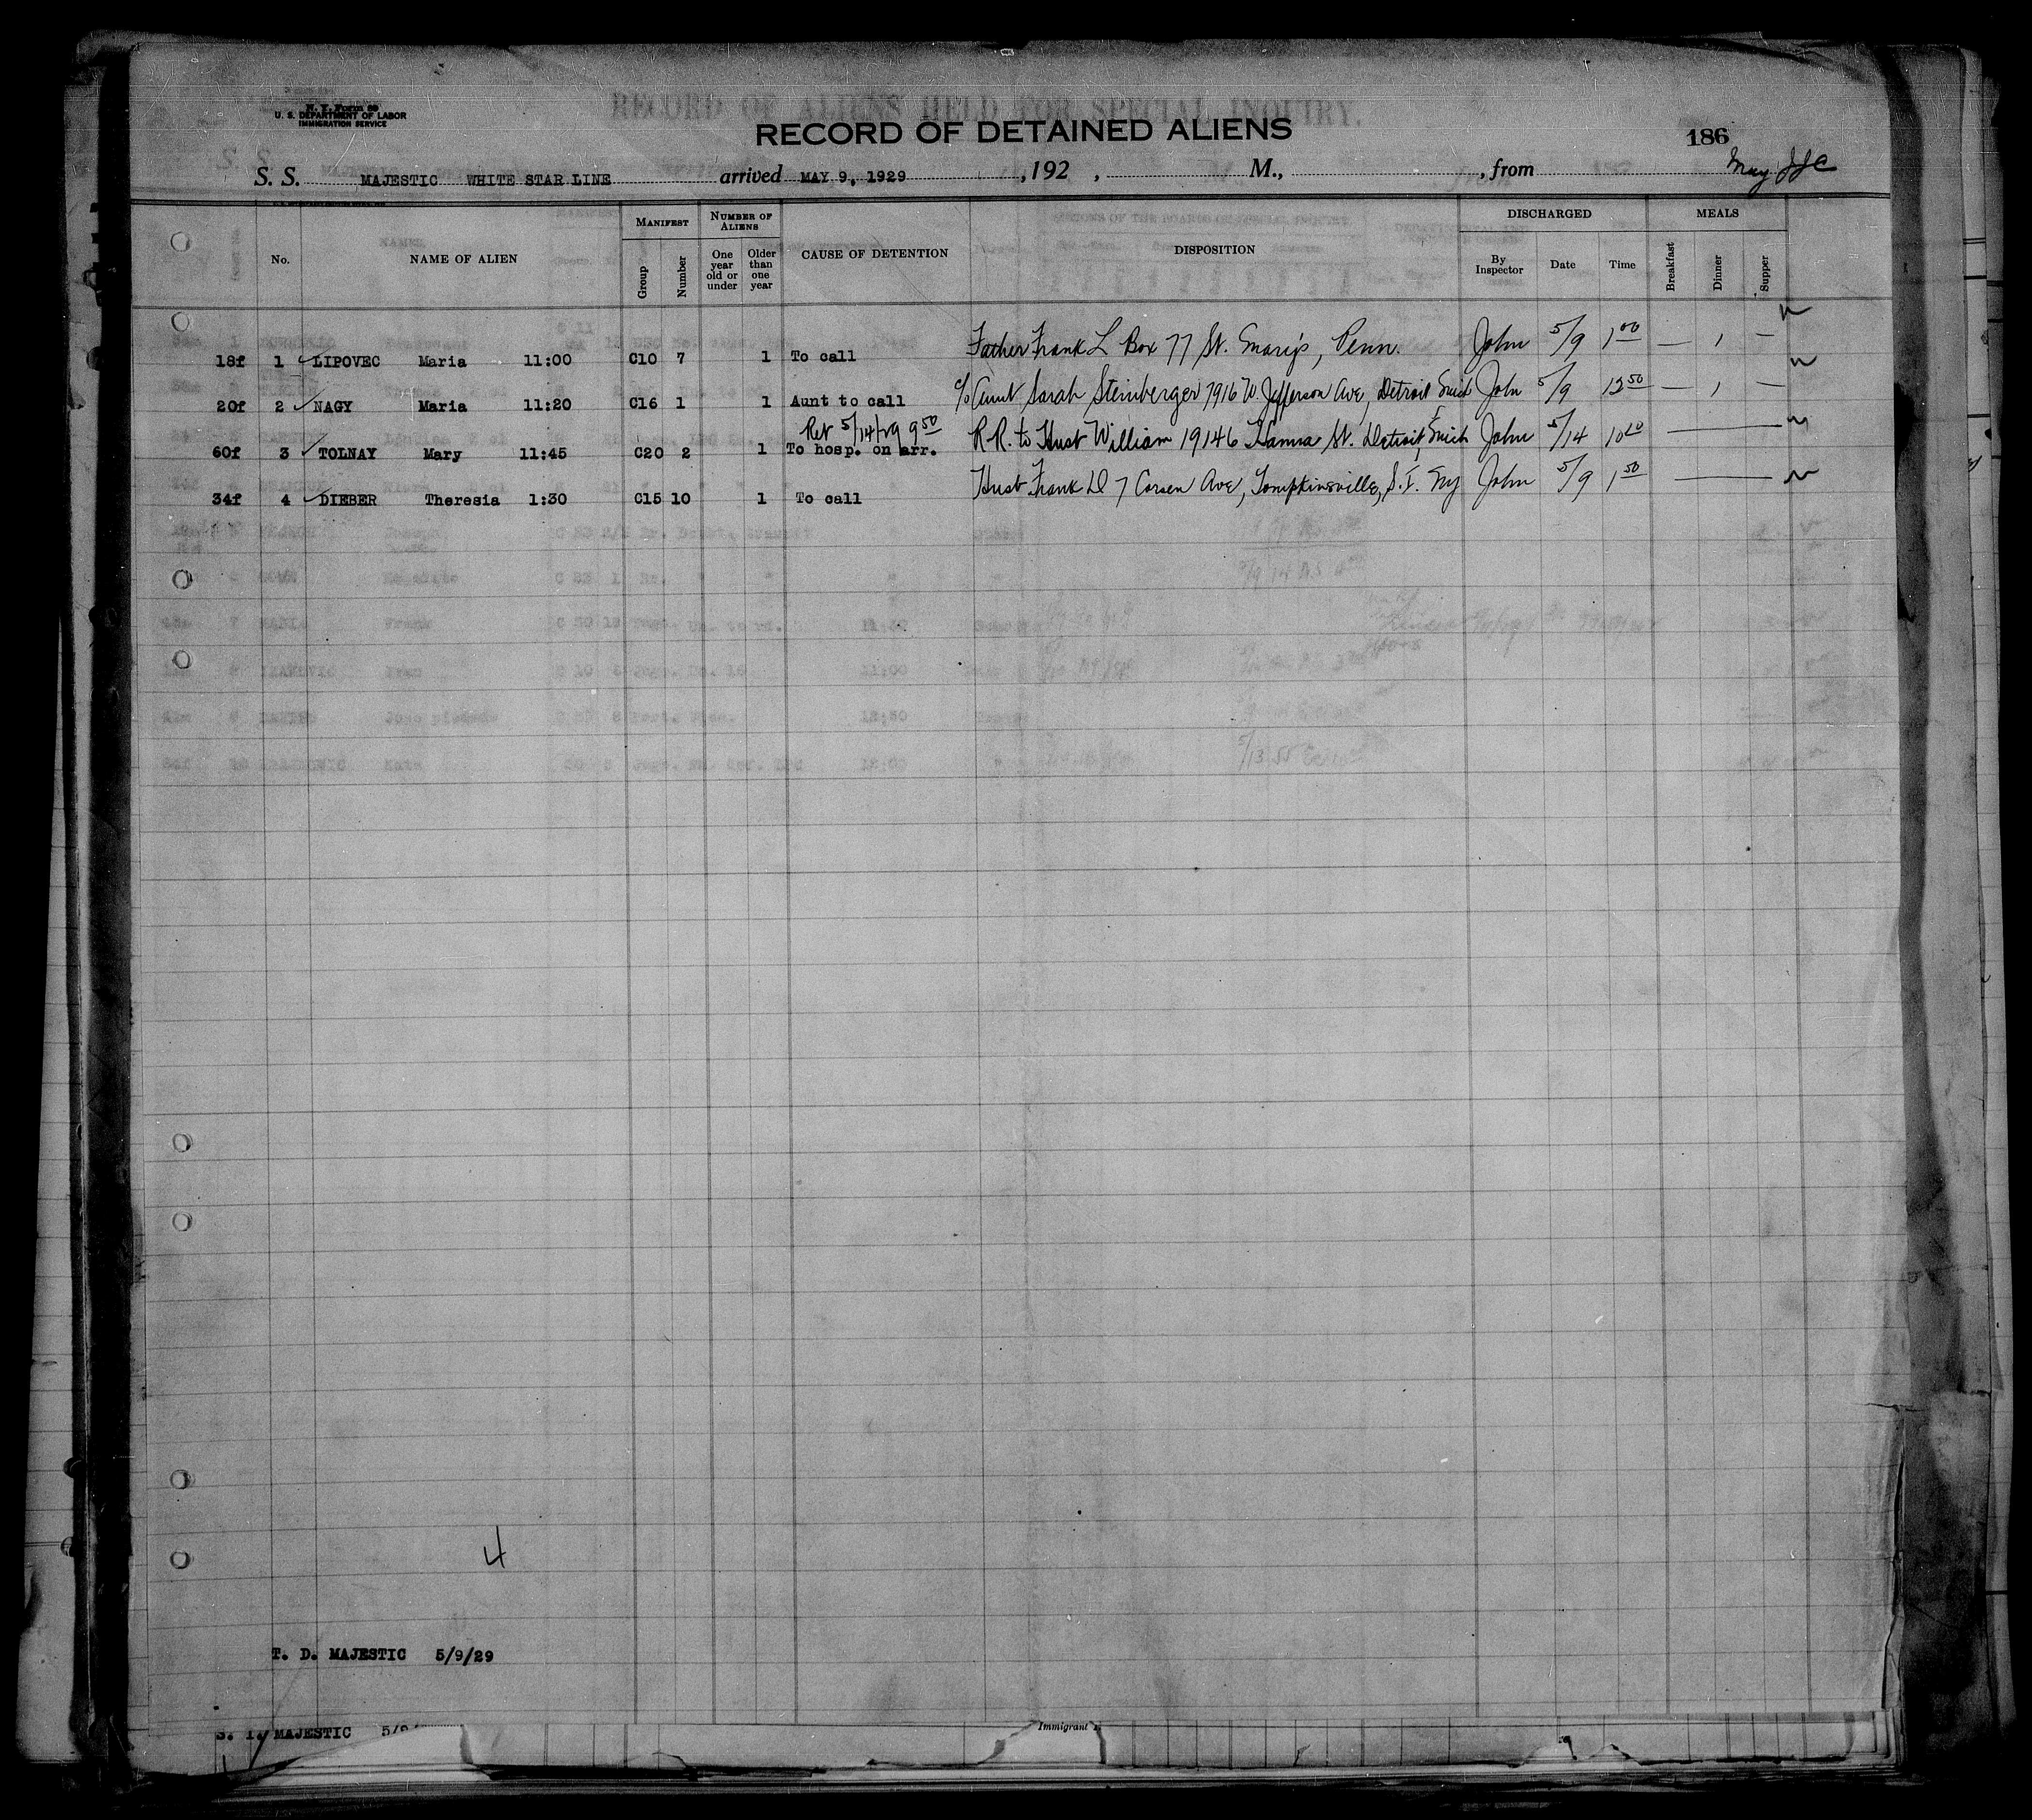 N. Y. Form 89
U. S. DEPARTMENT OF LABOR
IMMIGRATION SERVICE
RECORD OF ALIENS HELD FOR SPECIAL INQUIRY.
RECORD OF DETAINED ALIENS
186
S. S. MAJESTIC WHITE STAR LINE arrived MAY 9, 1929 , 192 , M., , from May
No. NAME OF ALIEN MANIFEST Group Number NUMBER OF ALIENS One year old or under Older than one year CAUSE OF DETENTION DISPOSITION DISCHARGED By Inspector Date Time MEALS Breakfast Dinner Supper
18f 1 ✓ LIPOVEC Maria 11:00 C10 7 1 To call Father Frank L Box 77 St. Mary's, Penn. John 5/9 1 00 — 1 —
20f 2 ✓ NAGY Maria 11:20 C16 1 1 Aunt to call c/o Aunt Sarah Steinberger 7916 W. Jefferson Ave, Detroit Mich John 5/9 12 50 — 1 —
Ret 5/14/29 9 50
60f 3 ✓ TOLNAY Mary 11:45 C20 2 1 To hosp. on arr. R.R. to Husb William 19146 Hanna St. Detroit, Mich John 5/14 10 20
34f 4 ✓ DIEBER Theresia 1:30 C15 10 1 To call Husb Frank D 7 Corsen Ave, Tompkinsville, S.I. Ny John 5/9 1 50
4
T. D. MAJESTIC 5/9/29
S. I. MAJESTIC 5/9/
Immigrant